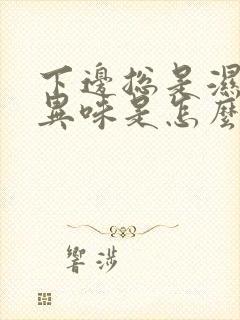 下邊總是濕
異味是怎麼
響涉